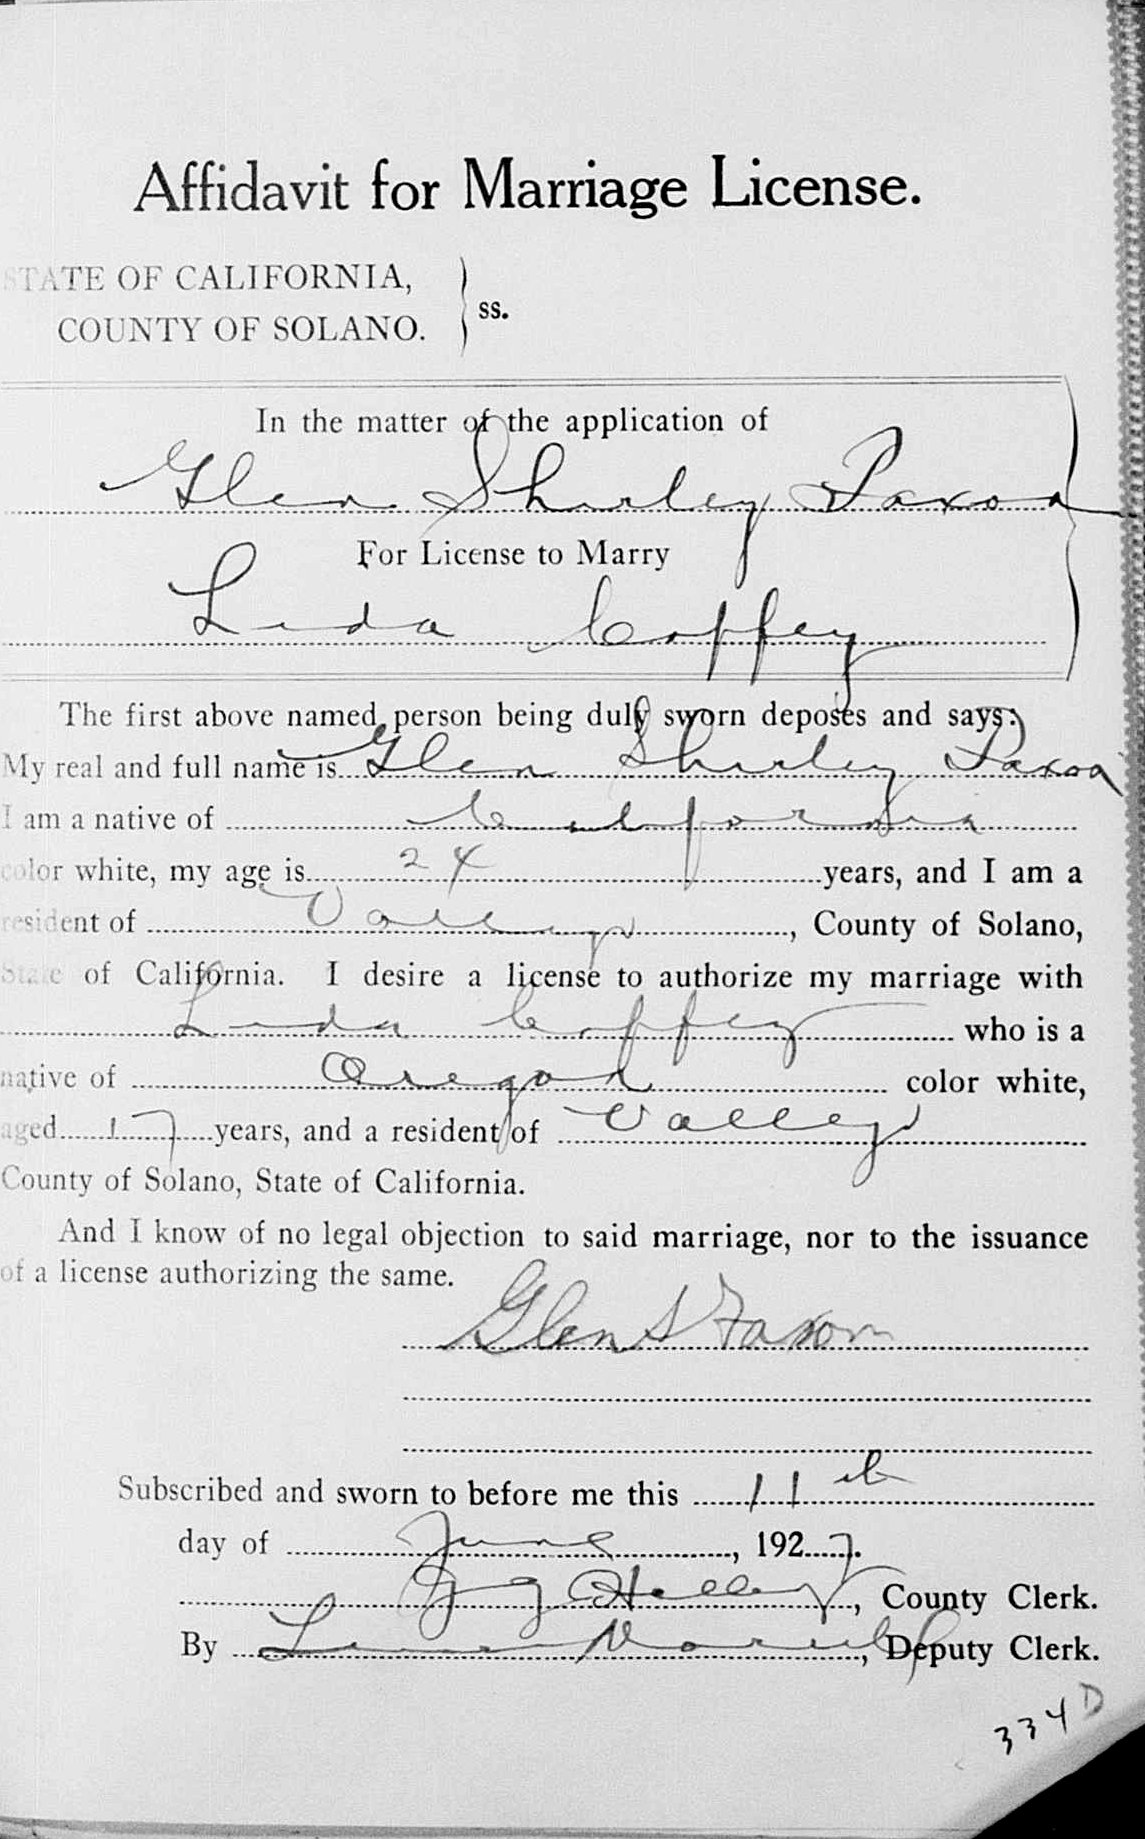 Affidavit for Marriage License.
STATE OF CALIFORNIA,
COUNTY OF SOLANO. } ss.
In the matter of the application of
Glen Shirley Faxon
For License to Marry
Leda Coffey
The first above named person being duly sworn deposes and says:
My real and full name is Glen Shirley Faxon
I am a native of California
color white, my age is 24 years, and I am a
resident of Vallejo, County of Solano,
State of California. I desire a license to authorize my marriage with
Leda Coffey who is a
native of Oregon color white,
aged 17 years, and a resident of Vallejo
County of Solano, State of California.
And I know of no legal objection to said marriage, nor to the issuance
of a license authorizing the same.
Glen S Faxon
Subscribed and sworn to before me this 11th
day of June, 1927.
G. G. Halliday, County Clerk.
By , Deputy Clerk.
334D